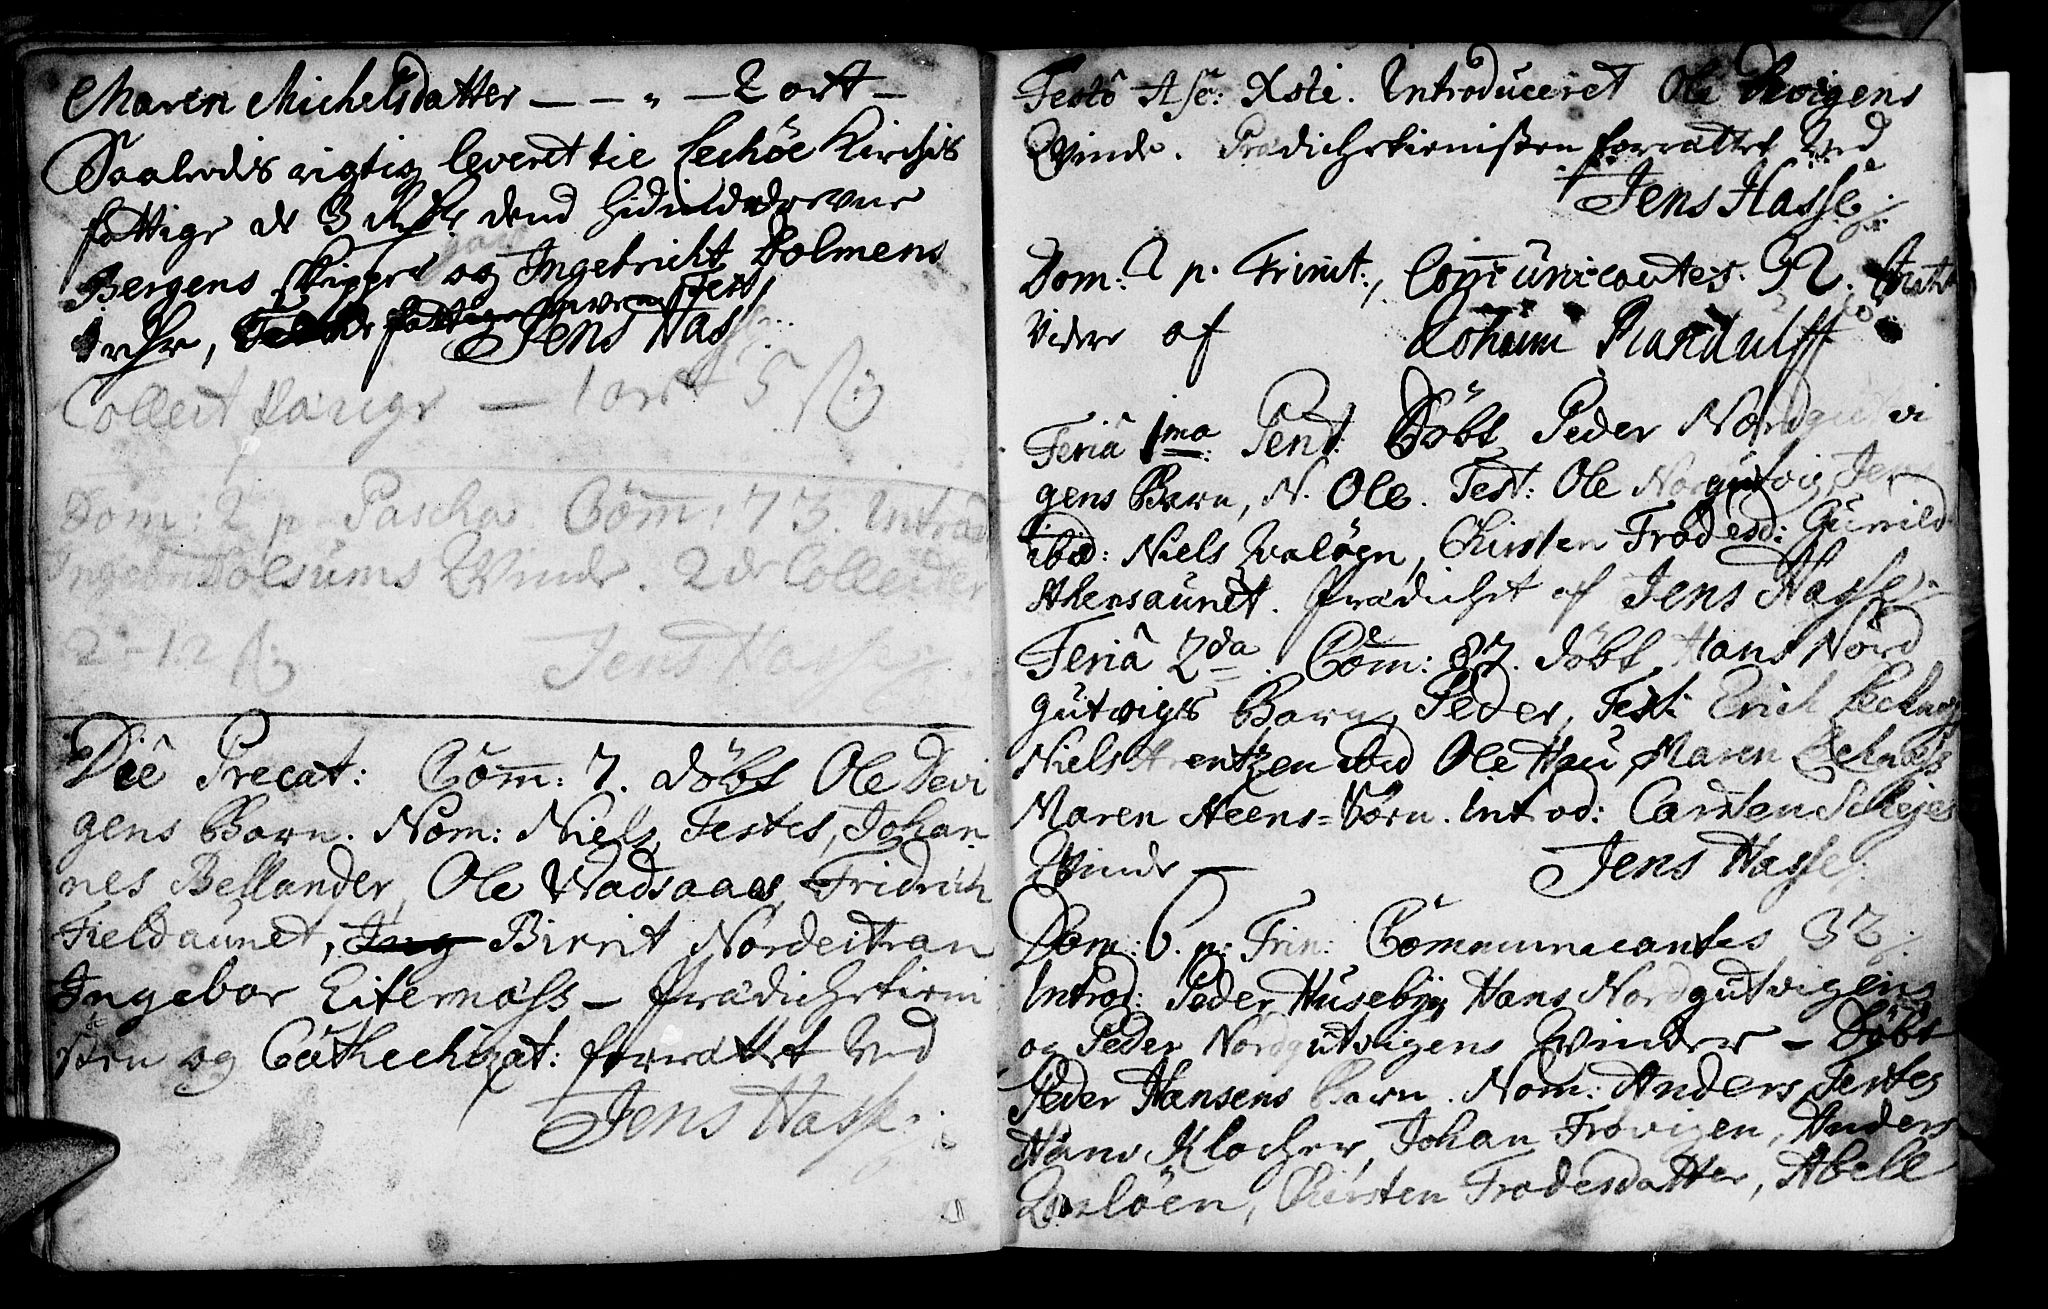 Maren Michelsdatter — — " — 2 ort —
Saaledis rigtig leveret til Lechöe Kirchis
fattige de 3 Rdr dend
Bergens skipper og Ingebricht Dolmens
1 rdr, fattige Test
Jens Hasse
Collect Pange — 1 ort 5 ß
Dom: 2 p Pascha Com̄: 73. Introd
Ingebr Dolsüms Qvinde. 2de Collecter
2 - 12 ß Jens Hasse
Die Precat: Com̄: 7. döbt Ole Devi
gens Barn. Nom: Niels, Testes, Johan
nes Bellander, Ole Wadsaaes, Fridrich
Fieldaunet, Ing Birrit Nordeitran
Ingebor Eiternæss — Prædichetieni
sten og Cathechizat: forrættet Ved
Jens Hasse
Festo Asc: Xsti. Introduceret Ole Devigens
Qvinde. Prædichetienisten forrættet Ved
Jens Hasse
Dom: 2 p. Trinit:, Com̄unicantes. 92.
Videre af Johann Randulff
Feriâ 1ma: Pent: Döbt Peder Nordgutvi
gens Barn, N. Ole. Test: Ole Nordgutvig, Jer
ibid: Niels Valöen, Chirsten Frodesd: Gunild
Ahensaunet. Prædichet af Jens Hasse
Feriâ 2da. Com̄: 87. döbt Hans Nord
gutvigs Barn, Peder, Test: Erich Lechnæs
Niels entzen ibid Ole Hau, Maren Lechnæss
Maren Steens=börn. Introd: Carsten Schejes
Qvinde — Jens Hasse
Dom: 6. p: Trin: Communicantes 32
Introd: Peder Huseby, Hans Nordgutvigens
og Peder Nordgutvigens Qvinder — Döbt
Peder Hansens Barn. Nom: Anders, Testes
Hans Klocher, Johan Frøvigen, Anders
Valöen, Chirsten Frodesdatter, Abell